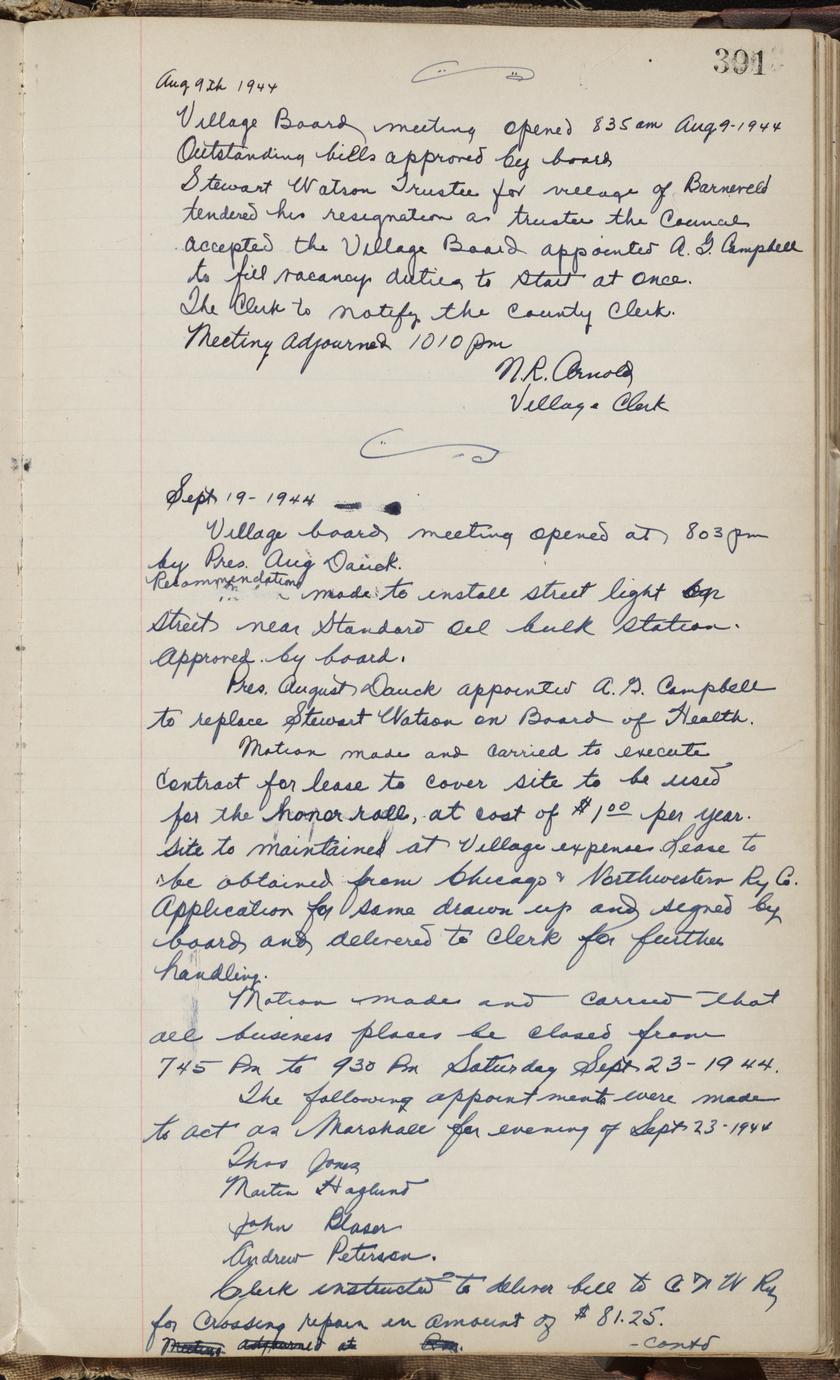 391
Aug 9th 1944
Village Board meeting opened 835 am Aug 9-1944
Outstanding bills approved by board
Stewart Watson Trustee for village of Barneveld
tendered his resignation as trustee the Council
accepted the Village Board appointed A. G. Campbell
to fill vacancy duties to start at once.
The Clerk to notify the County Clerk.
Meeting adjourned 1010 pm
N.R. Arnold
Village Clerk
Sept 19-1944
Village board meeting opened at 803 pm
by Pres. Aug Dauck.
Recommendation made to install street light
street near Standard Oil bulk station.
Approved by board.
Pres. August Dauck appointed A. G. Campbell
to replace Stewart Watson on Board of Health.
Motion made and carried to execute
contract for lease to cover site to be used
for the honor roll, at cost of $1.00 per year.
Site to maintained at Village expense. Lease to
be obtained from Chicago & Northwestern Ry Co.
Application for same drawn up and signed by
board and delivered to Clerk for further
handling.
Motion made and carried that
all business places be closed from
745 Pm to 930 Pm Saturday Sept 23-1944.
The following appointments were made
to act as Marshall for evening of Sept 23-1944
Thos Jones
Martin Haglund
John Blaser
Andrew Peterson.
Clerk instructed to deliver bill to C & N W Ry
for crossing repair in amount of $81.25.
Meeting adjourned at Pm.
-contd